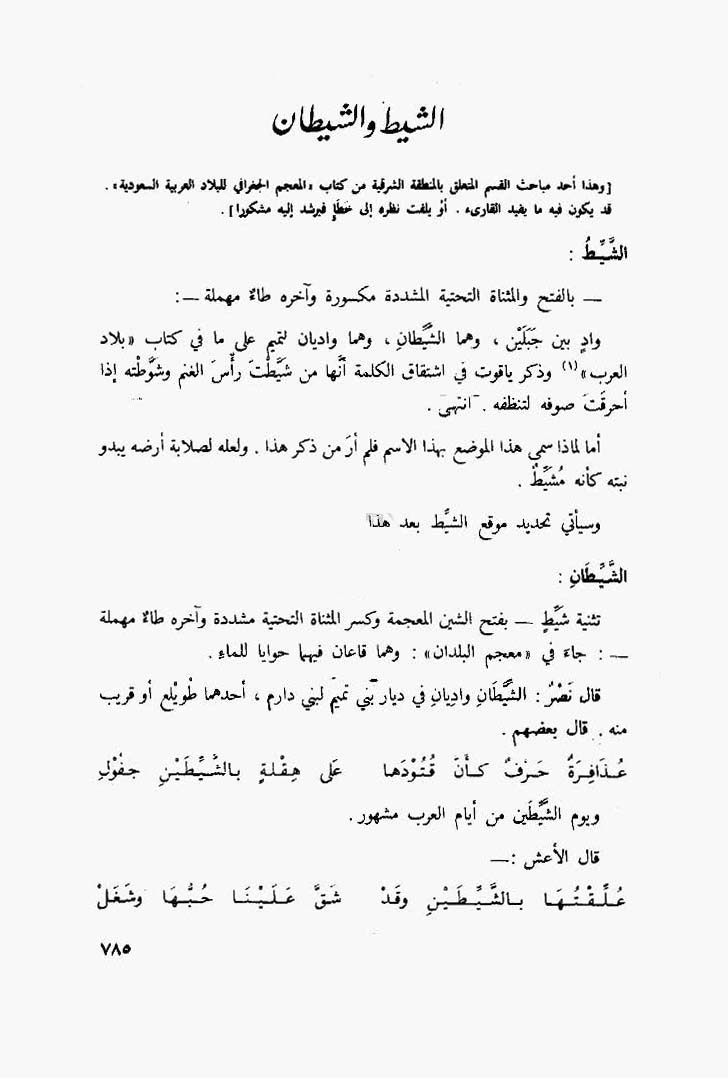 الشيط والشيطان
[وهذا أحد مباحث القسم المتعلق بالمنطقة الشرقية من كتاب «المعجم الجغرافي للبلاد العربية السعودية» .
قد يكون فيه ما يفيد القارىء . أوْ يلفت نظره إلى خطإٍ فيرشد إليه مشكورا] .
الشَّيِّطُ :
— بالفتح والمثناة التحتية المشددة مكسورة وآخره طاءٌ مهملة — :
وادٍ بين جَبَلَيْن ، وهما الشَّيِّطانِ ، وهما واديان لتميم على ما في كتاب «بلاد
العرب»(١) وذكر ياقوت في اشتقاق الكلمة أنَّها من شَيَّطْتَ رأْسَ الغنم وشوَّطْته إذا
أحرقَتَ صوفه لتنظفه . انتهىَ .
أما لماذا سمي هذا الموضع بهذا الاسم فلم أرَ من ذكر هذا . ولعله لصلابة أرضه يبدو
نبته كأنه مُشَيَّطٌ .
وسيأتي تحديد موقع الشيِّط بعد هذا
الشَّيِّطَانِ :
تثنية شَيِّطٍ — بفتح الشين المعجمة وكسر المثناة التحتية مشددة وآخره طاءٌ مهملة
— : جاءَ في «معجم البلدان» : وهما قاعان فيهما حوايا للماءِ .
قال نَصْرٌ : الشَّيِّطَانِ وادِيانِ في ديار بَني تميم لبني دارم ، أحدهما طُويْلع أو قريب
منه . قال بعضهم .
عُذَافِرَةٌ حَرْفٌ كأَنَّ قُتُوْدَها عَلى هِقْلةٍ بالشَّيِّطَيْنِ جفُوْلِ
ويوم الشَّيِّطَين من أيام العرب مشهور .
قال الأعش :—
عُلِّقْتُهَا بالشَّيِّطَيْنِ وقَدْ شَقَّ عَلَيْنَا حُبُّهَا وشَغَلْ
٧٨٥